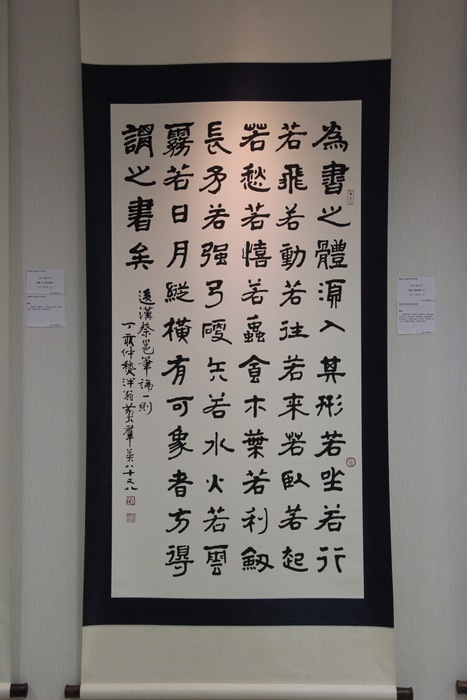 為書之體湏入其形若坐若行
若飛若動若往若来若臥若起
若愁若憘若蟲食木葉若利劔
長矛若强弓硬矢若水火若雲
霧若日月縱橫有可象者方得
謂之書矣
漢蔡邕筆論一則
丁酉仲 泮翁 八十又八